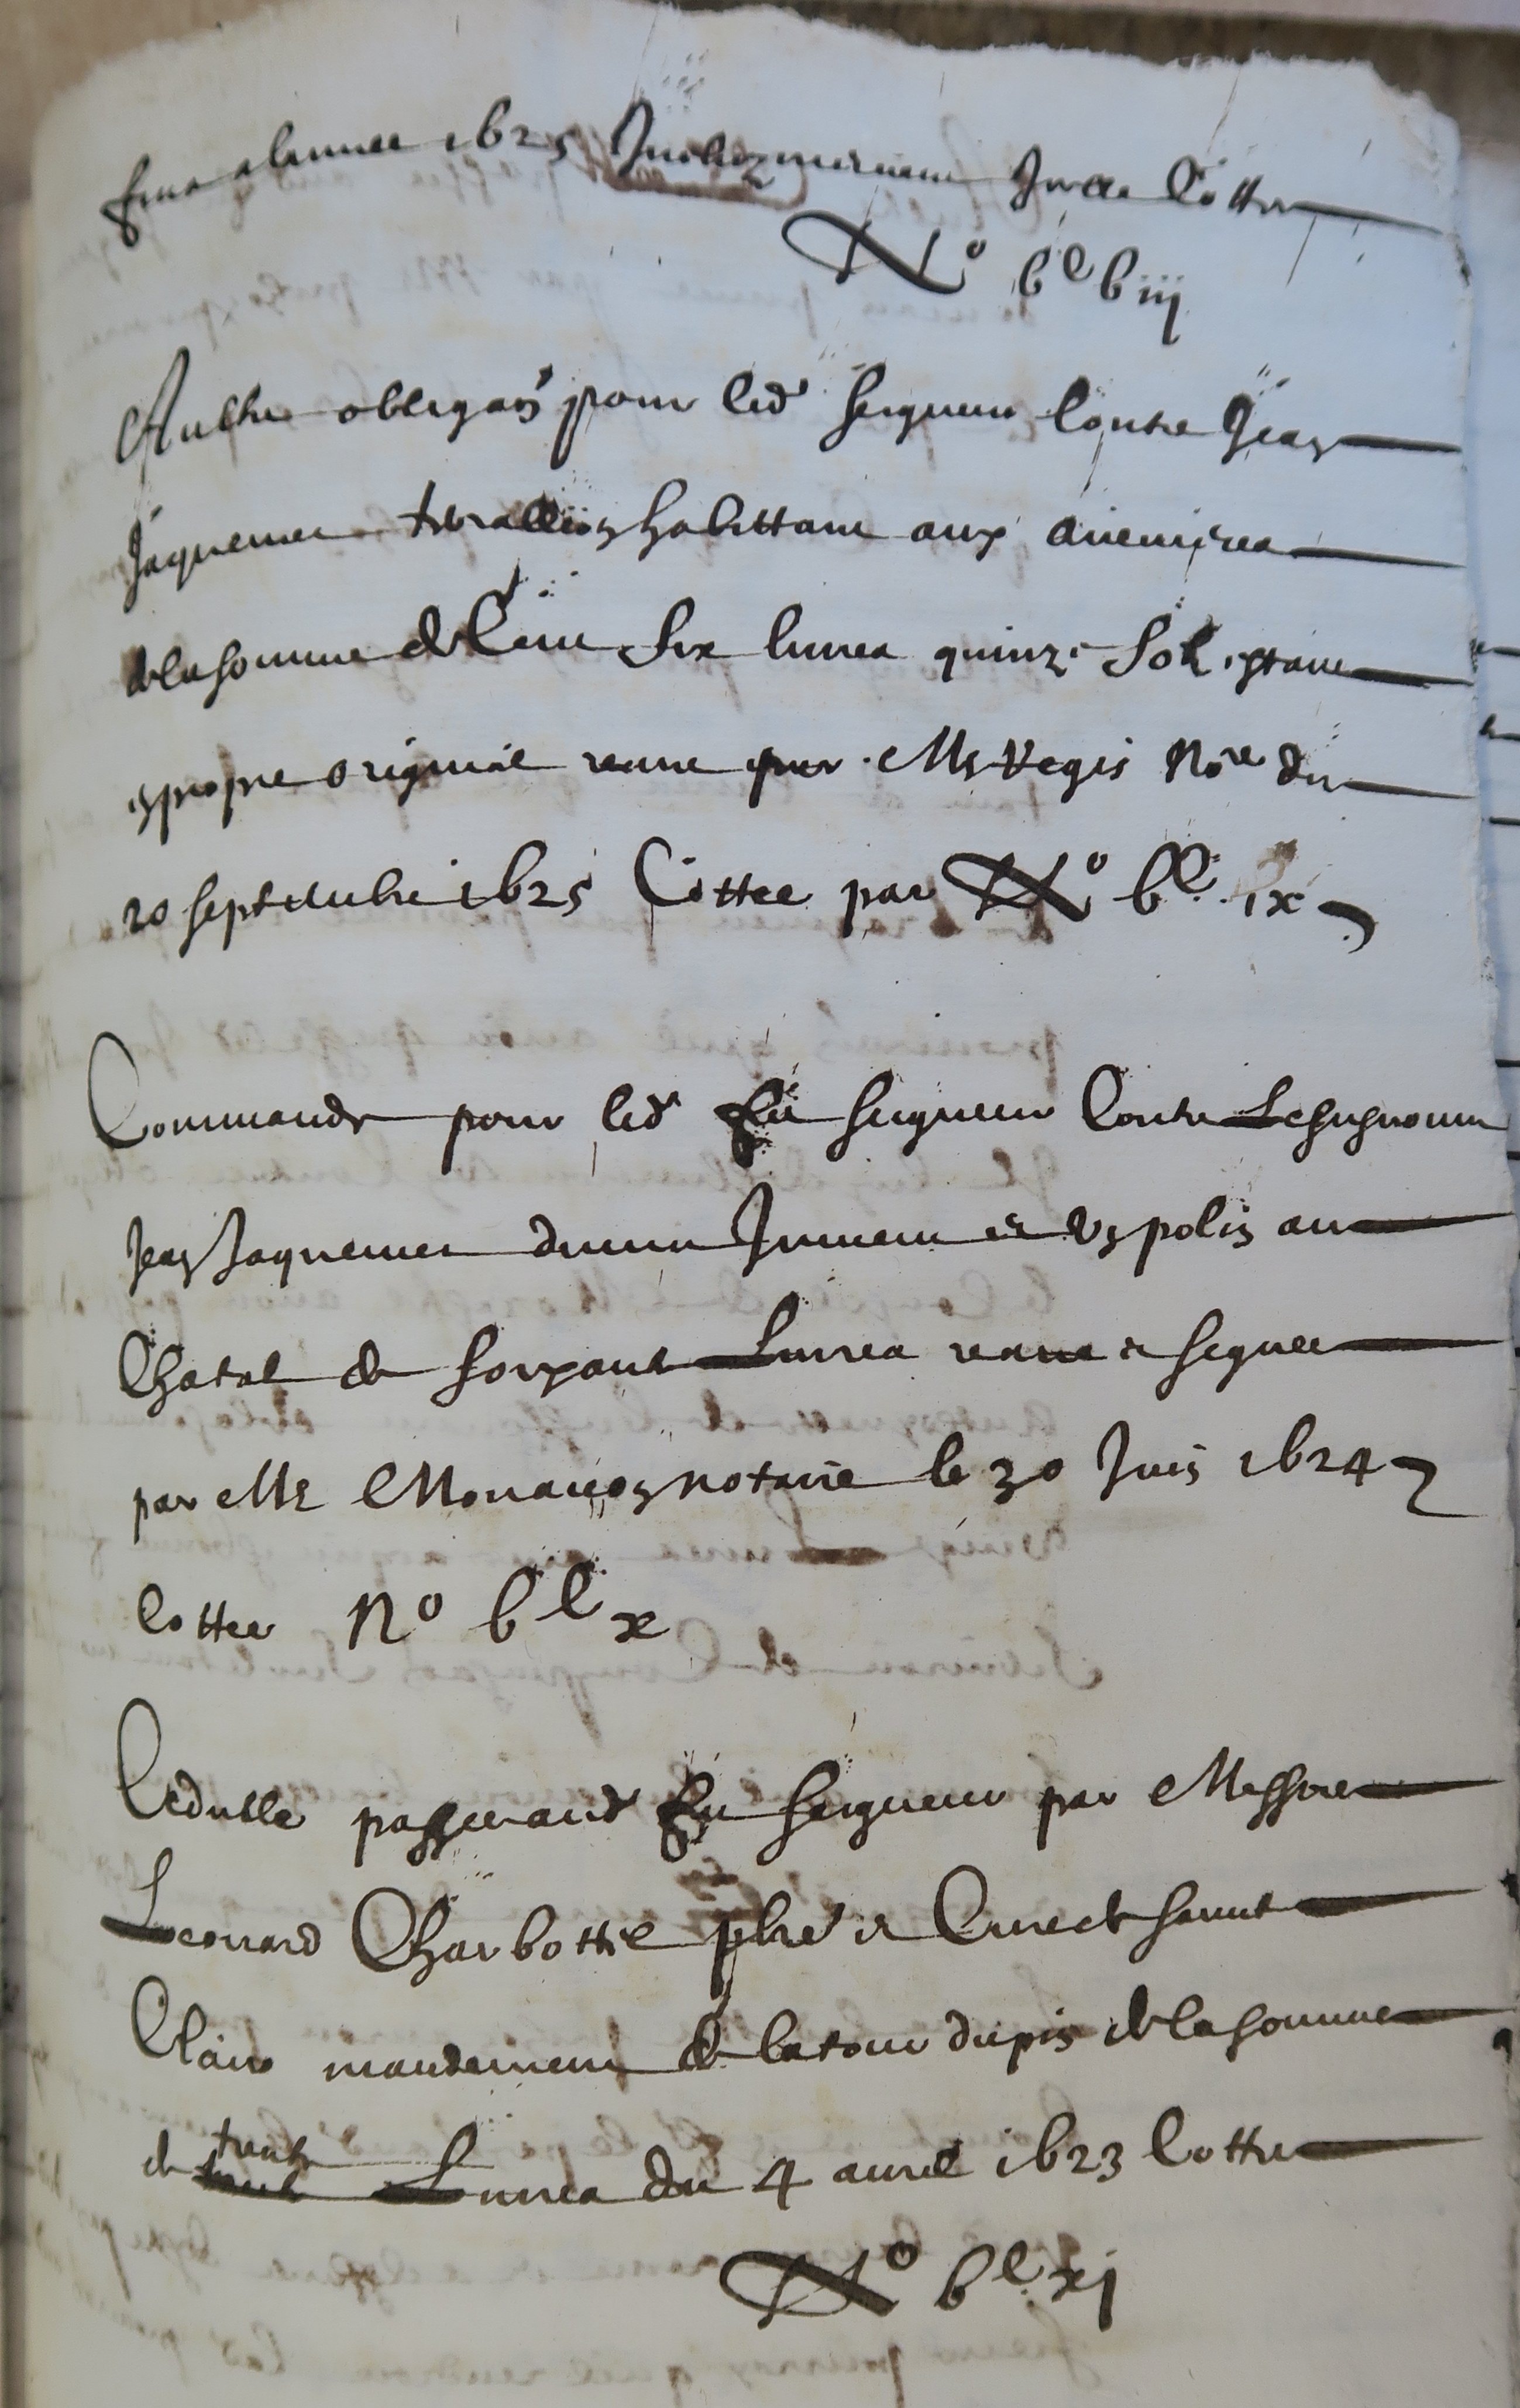 fine a lannee 1625 Inclusivement Cottee
N° bᶜ biij
Aultre obligaõn pour led' seigneur contre Jean
Jaquemet habittant aux avenieres
de la somme de Cent six livres quinze solz estant
en propre original receue par Me Regis No.re du
20 septembre 1625 Cottee par N° bᶜ ix
Commande pour led' feu seigneur Contre
Jean Jaquemet dune Jument et un polin au
Chatal de soixante Livres receue et signee
par Me notaire le 30 Juin 1624
Cottee N° bᶜ x
Cedulle passee aud' feu seigneur par Messire
Leonard Charbottel pbre et Cure de sainct
Clair mandement de la tour du pin de la somme
de trente Livres du 4 avril 1623 Cottee
N° bᶜ xj